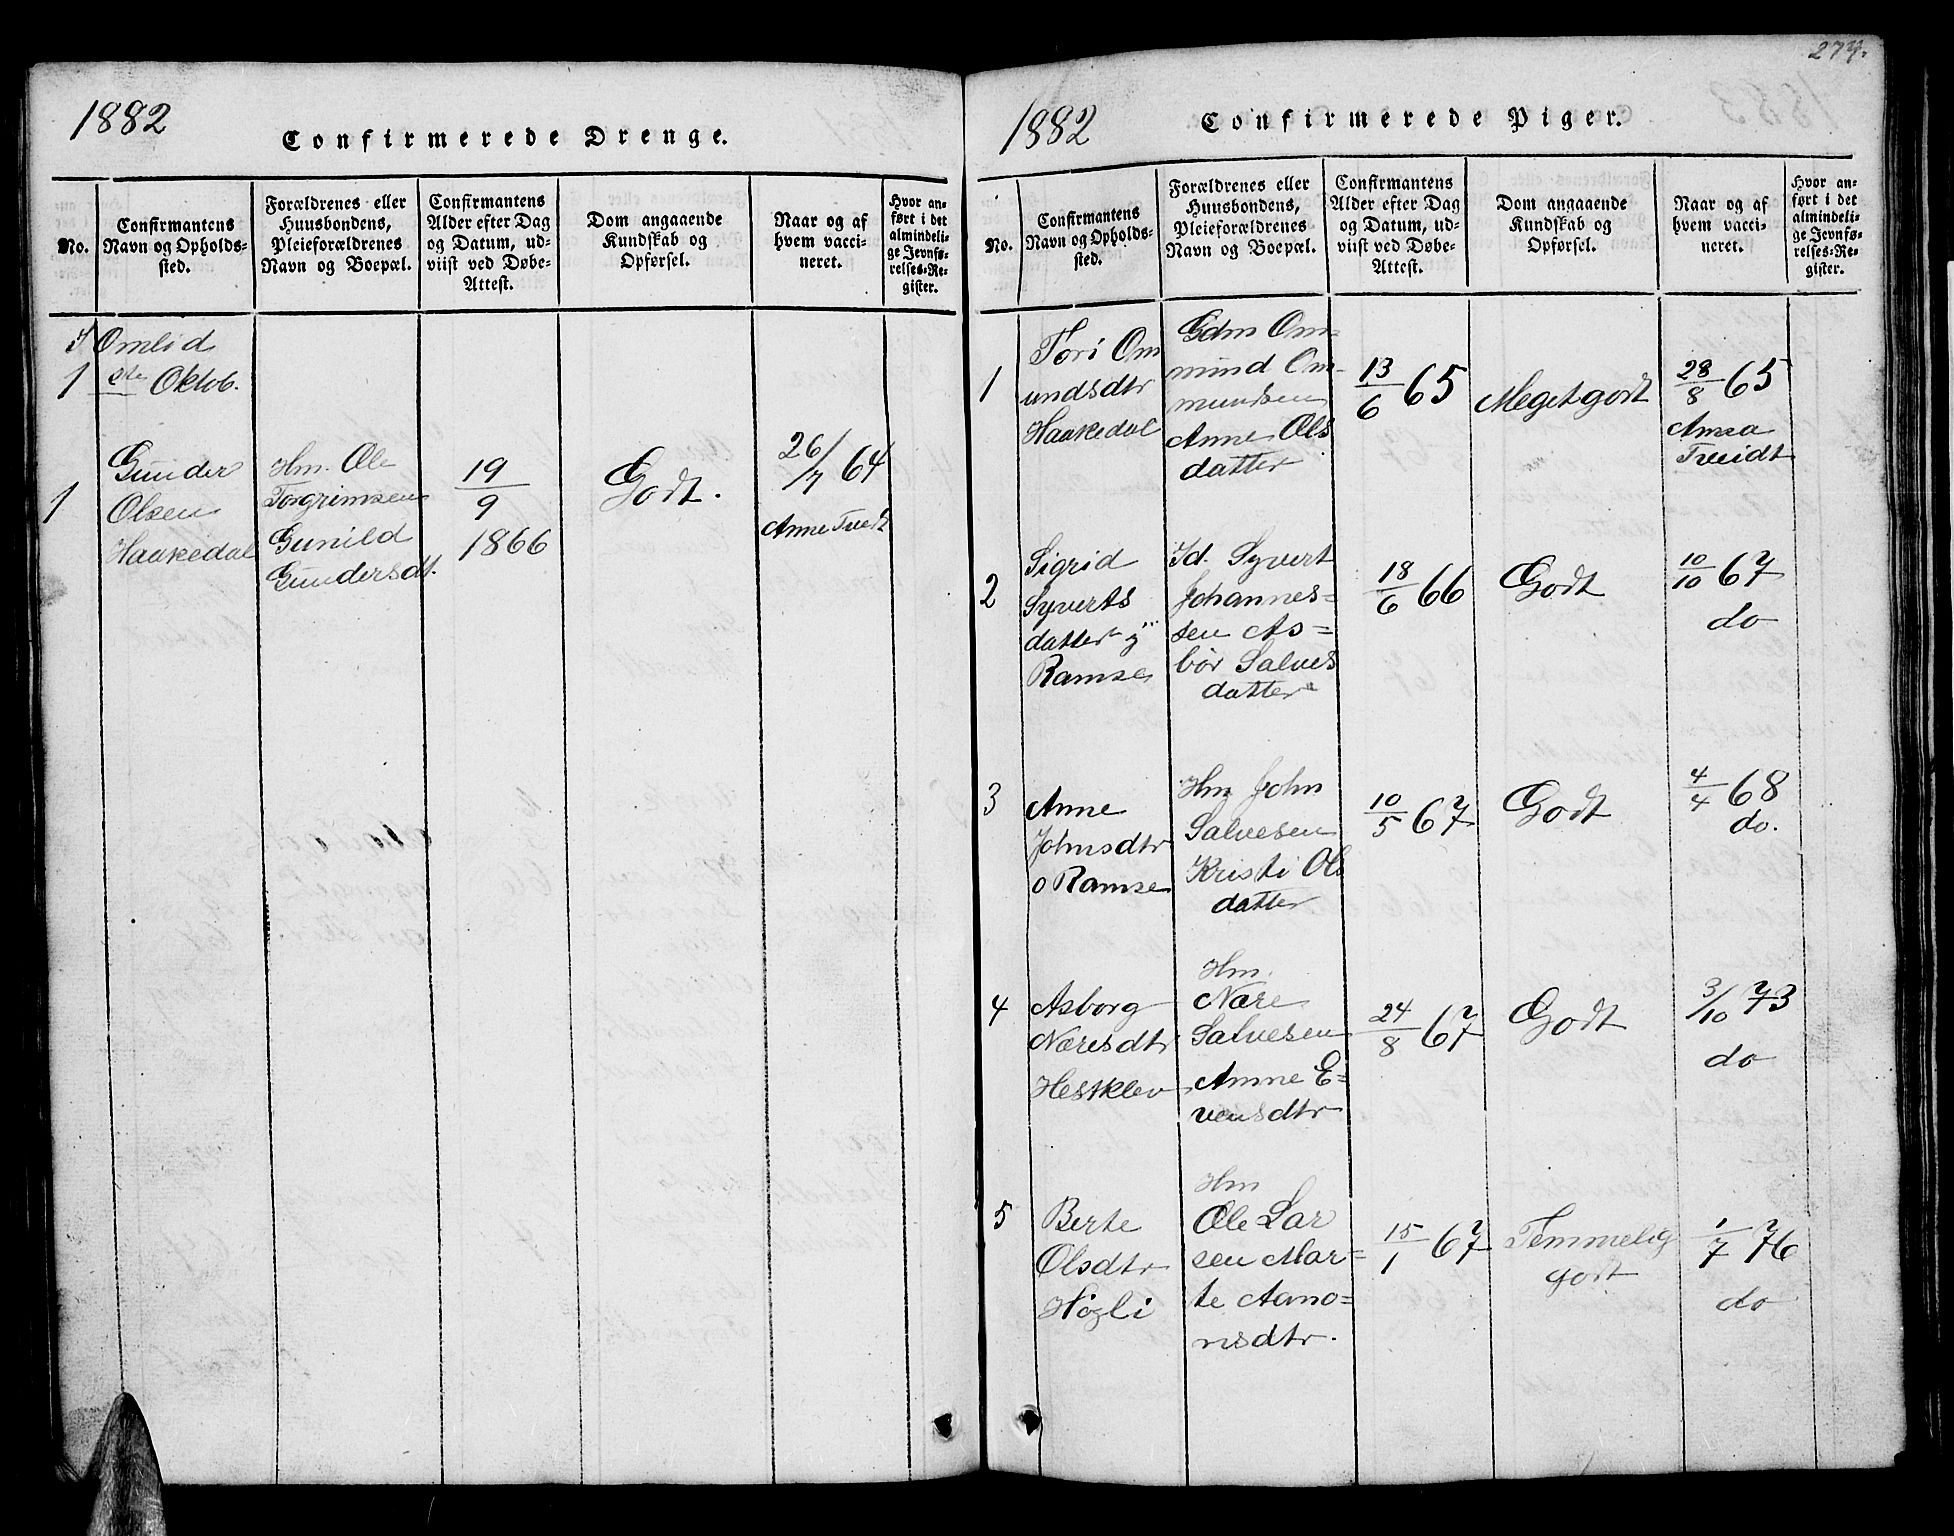 1882
Confirmerede Drenge.
No.
Confirmantens
Navn og Opholds-
sted.
Forældrenes eller
Huusbondens,
Pleieforældrenes
Navn og Boepæl.
Confirmantens
Alder efter Dag
og Datum, ud-
viist ved Døbe-
Attest.
Dom angaaende
Kundskab og
Opførsel.
Naar og af
hvem vacci-
neret.
Hvor an-
ført i det
almindeli-
ge Jevnfø-
relses-Re-
gister.
Omlid
1 ste Oktob.
1
Gunder
Olsen
Haakedal
Hm. Ole
Torgrimsen
Gunild
Gundersdt.
19
9
1866
Godt.
26/7 64
Anne Tvedt
274.
1882
Confirmerede Piger.
No.
Confirmantens
Navn og Opholds-
sted.
Forældrenes eller
Huusbondens,
Pleieforældrenes
Navn og Boepæl.
Confirmantens
Alder efter Dag
og Datum, ud-
viist ved Døbe-
Attest.
Dom angaaende
Kundskab og
Opførsel.
Naar og af
hvem vacci-
neret.
Hvor an-
ført i det
almindeli-
ge Jevnfø-
relses-Re-
gister.
1
Tori Om
undsdtr
Haakedal
Gdm Om-
mund Om-
mundsen
Anne Ols
datter
13/6 65
Meget godt
28/8 65
Tveidt
2
Sigrid
Syverts
datter
Ramse
Id. Syvert
Johannes=
sen As=
bør Salves
datter
18/6 66
Godt
10/10 67
do
3
Anne
Johnsdtr
o Ramse
Hm John
Salvesen
Kristi Ols
datter
10/5 67
Godt
4/4 68
do.
4
Asborg
Næresdtr
Hestklev
Hm.
Nære
Salvesen
Anne E=
vensdtr
24/8 67
Godt
3/10 73
do
5
Berte
Olsdtr
Høgli
Hm
Ole Lar
sen Mar=
te Aamo=
nsdtr.
15/1 67
Temmelig
godt
1/7 76
do